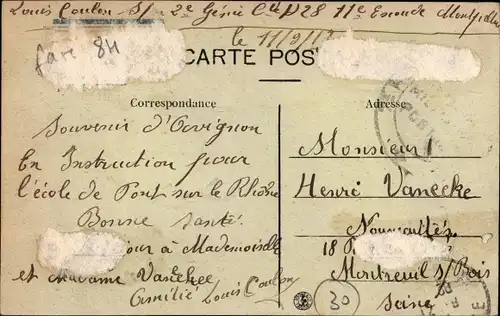 Louis Coulon S/ 2e Génie Cie D28 11e Escouade Montpellier
le 11/9/1
fare 84
CARTE POS
Correspondance
Adresse
Souvenir d'Avignon
En Instruction pour
l'école de Pont sur le Rhône
Bonne Santé
jour à Mademoiselle
et Madame Vanëckee
Amitié Louis Coulon
Monsieur
Henri Vanecke
Nouveautés
18
Montreuil s/Bois
Seine
30